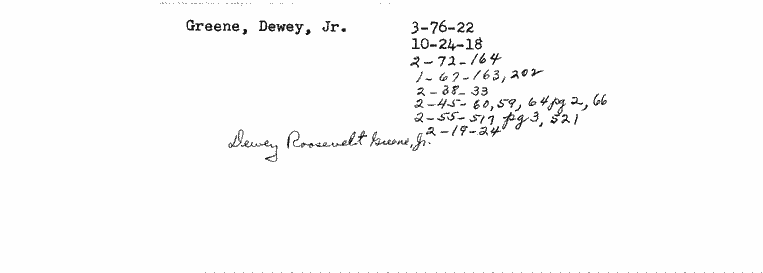 Greene, Dewey, Jr.
3-76-22
10-24-18
2-72-164
1-67-163, 202
2-38-33
2-45-60, 59, 64 pg 2, 66
2-55-517 pg 3, 521
2-19-24
Dewey Roosevelt Greene, Jr.